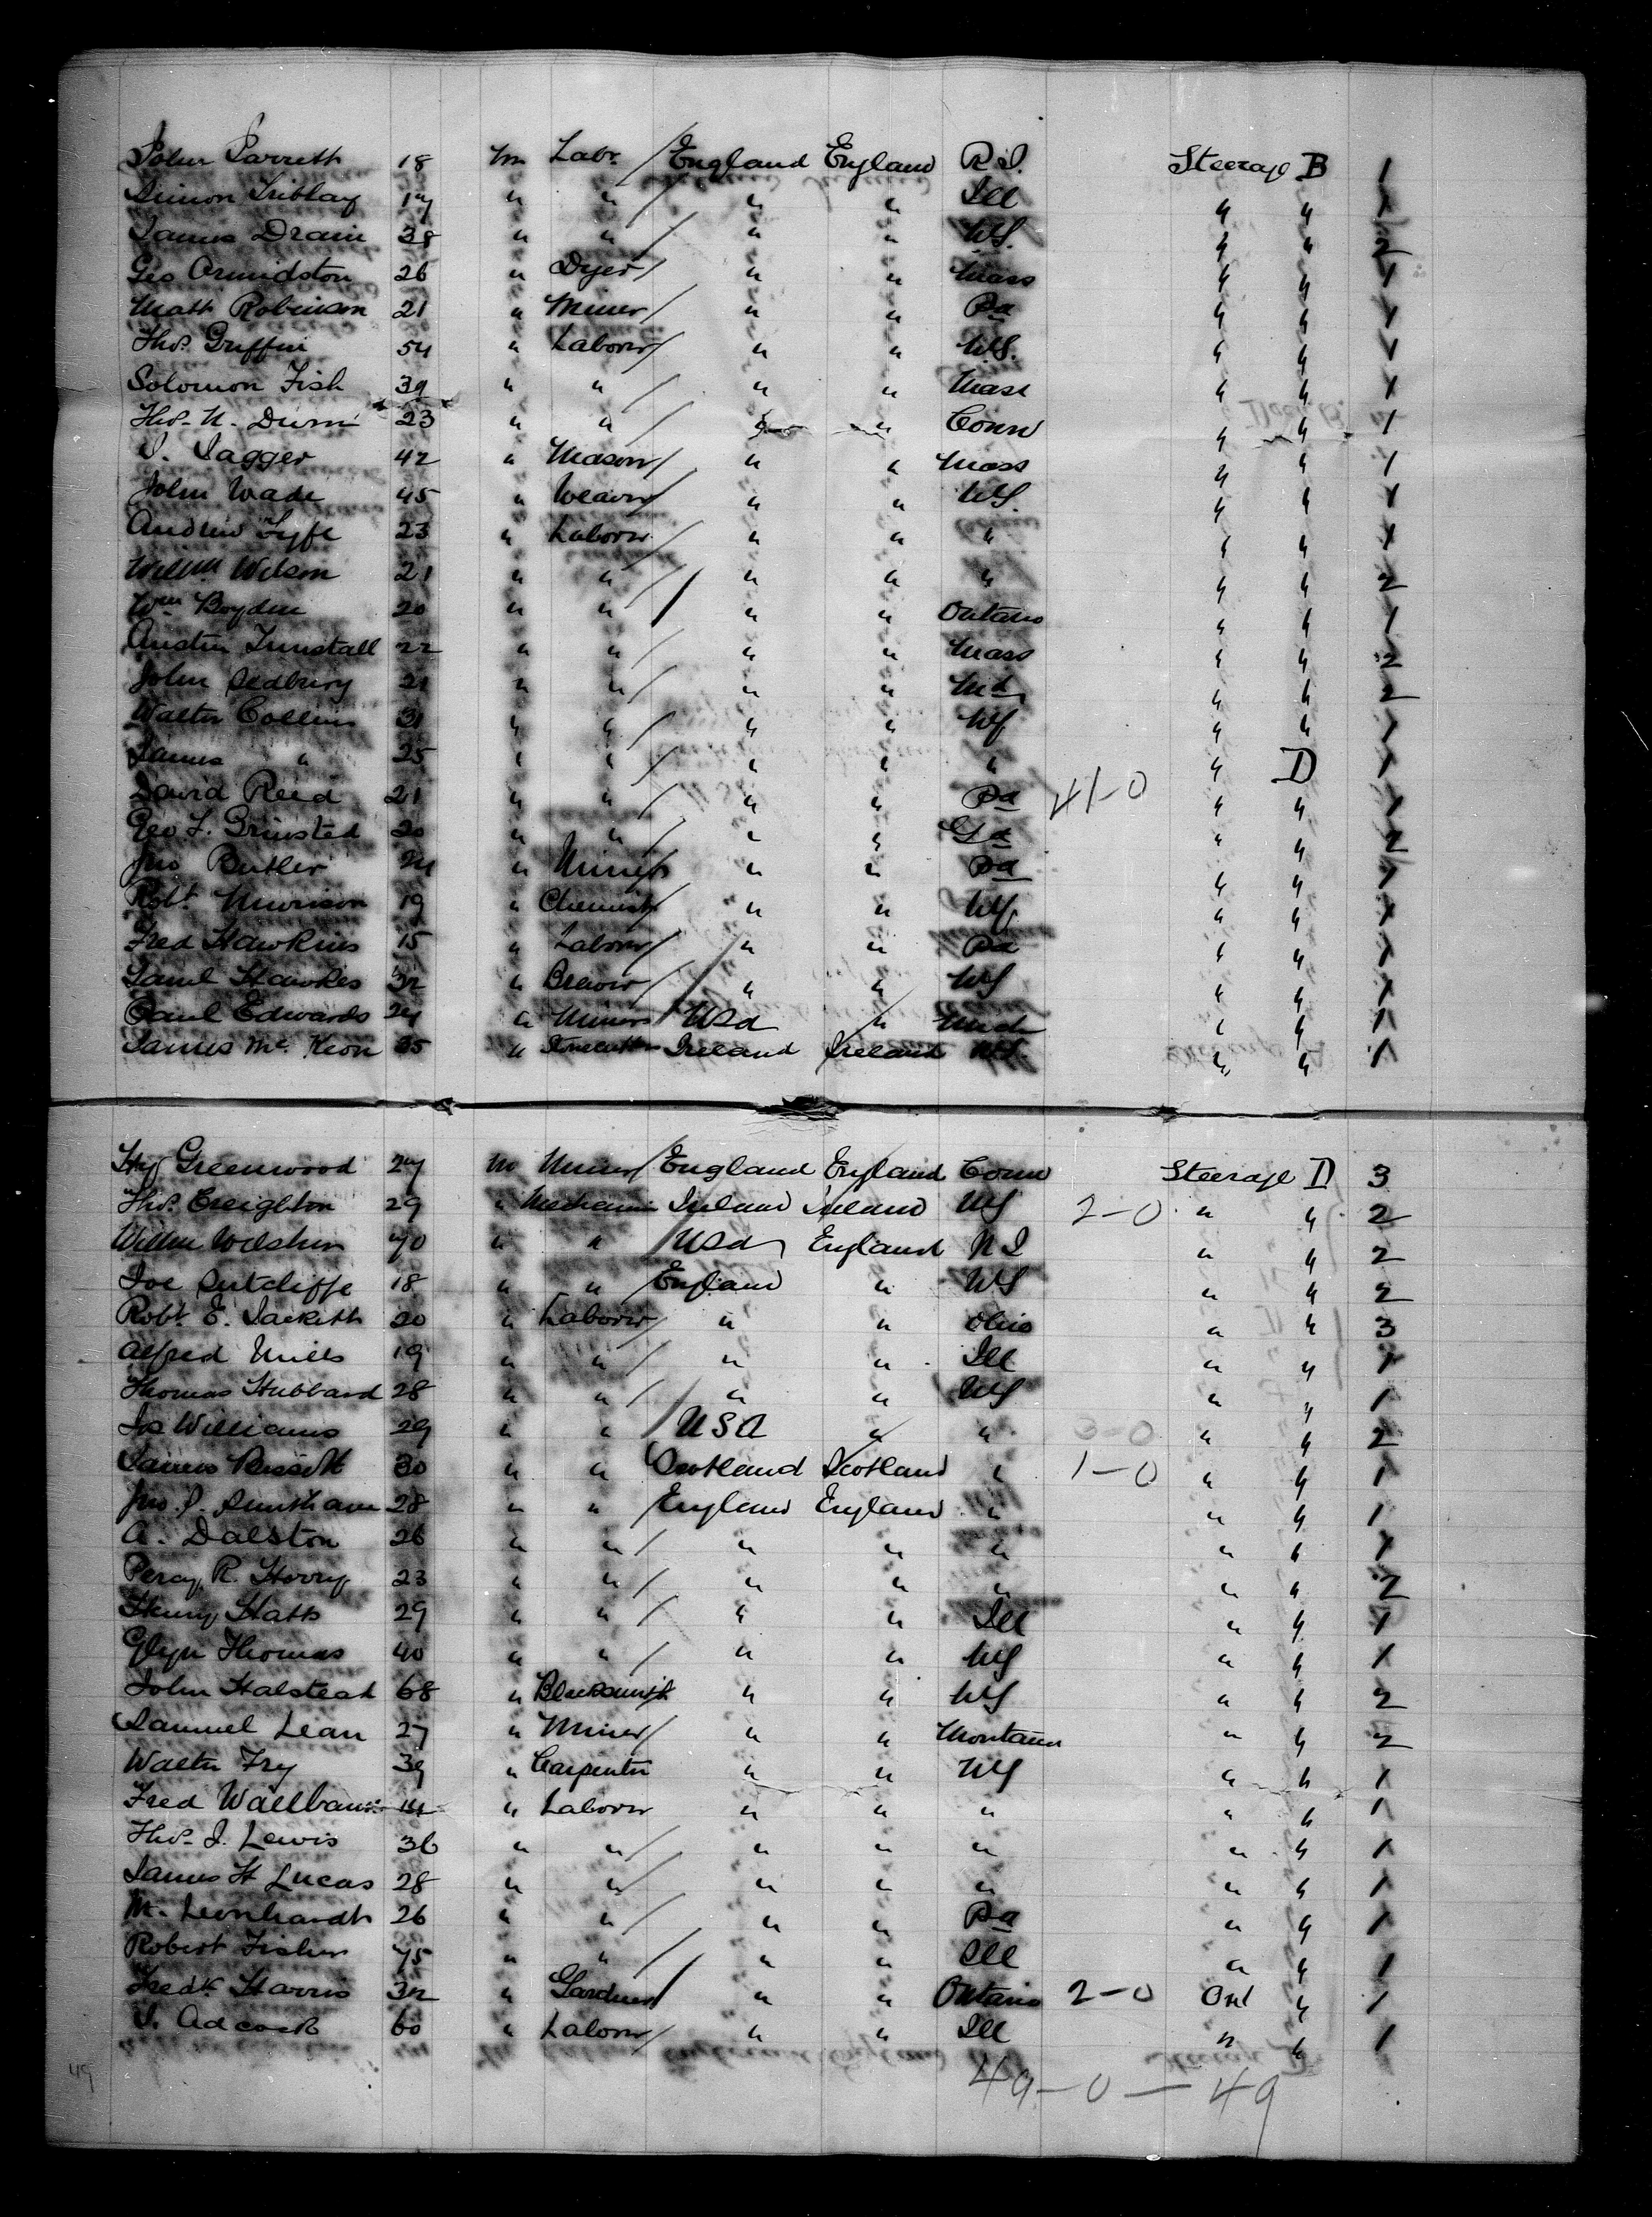 John Parrett 18 m Labr. England England R.I. Steerage B 1
Simon Triblay 17 " " " " Ill " " 1
James Drain 38 " " " " NY. " " 2
Geo Armidston 26 " Dyer " " Mass " " 1
Matt Robinson 21 " Miner " " Pa " " 1
Thos. Griffin 54 " Laborer " " NY. " " 1
Solomon Fish 39 " " " " Mass " " 1
Thos. N. Dunn 23 " " " " Conn " " 1
J. Jagger 42 " Mason " " Mass " " 1
John Wade 45 " Weaver " " NY. " " 1
Andrew Fyfe 23 " Laborer " " " " " 1
Willm Wilson 21 " " " " " " " 2
Wm Boyden 20 " " " " Ontario " " 1
Austin Tunstall 22 " " " " Mass " " 2
John Sedbury 21 " " " " Md " " 2
Walter Collins 31 " " " " NY " " 1
James " 25 " " " " " " D 1
David Reed 21 " " " " Pa 41-0 " " 1
Geo F. Grinsted 20 " " " " Ga " " 2
Jno Butler 24 " Miner " " Pa " " 1
Robt. Morrison 19 " Chemist " " NY " " 1
Fred Hawkins 15 " Laborer " " Pa " " 1
Saml Hawkes 32 " Brewer " " NY " " 1
Paul Edwards 24 " Miner USA " Mich " " 1
James Mc Keon 35 " Stonecutter Ireland Ireland NY. " " 1
Hy Greenwood 27 m Miner England England Conn Steerage D 3
Thos. Creighton 29 " Mechanic Ireland Ireland NY 2-0 " " 2
Willm Wilshin 40 " " USA England N J " " 2
Joe Sutcliffe 18 " " England " NY " " 2
Robt. E. Sackett 20 " Laborer " " Ohio " " 3
Alfred Mills 19 " " " " Ill " " 1
Thomas Hubbard 28 " " " " NY " " 1
Js Williams 29 " " USA " " 3-0 " " 2
James Bissett 30 " " Scotland Scotland " 1-0 " " 1
Jno. J. 28 " " England England " " " 1
A. Dalston 26 " " " " " " " 1
Percy R. Horry 23 " " " " " " " 2
Henry Hatts 29 " " " " Ill " " 1
Glyn Thomas 40 " " " " NY " " 1
John Halstead 68 " Blacksmith " " NY " " 2
Samuel Lean 27 " Miner " " Montana " " 2
Walter Fry 39 " Carpenter " " NY " " 1
Fred 14 " Laborer " " " " " 1
Thos. J. Lewis 36 " " " " " " " 1
James H Lucas 28 " " " " " " " 1
M. Leonhardt 26 " " " " Pa " " 1
Robert Fisher 45 " " " " Ill " " 1
Fredk. Harris 32 " Gardner " " Ontario 2-0 Ont " 1
J. Adcock 60 " Laborer " " Ill " " 1
49-0-49
49